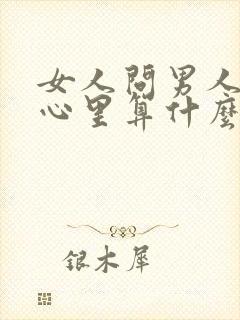 女人問男人
心里算什麼
银木犀